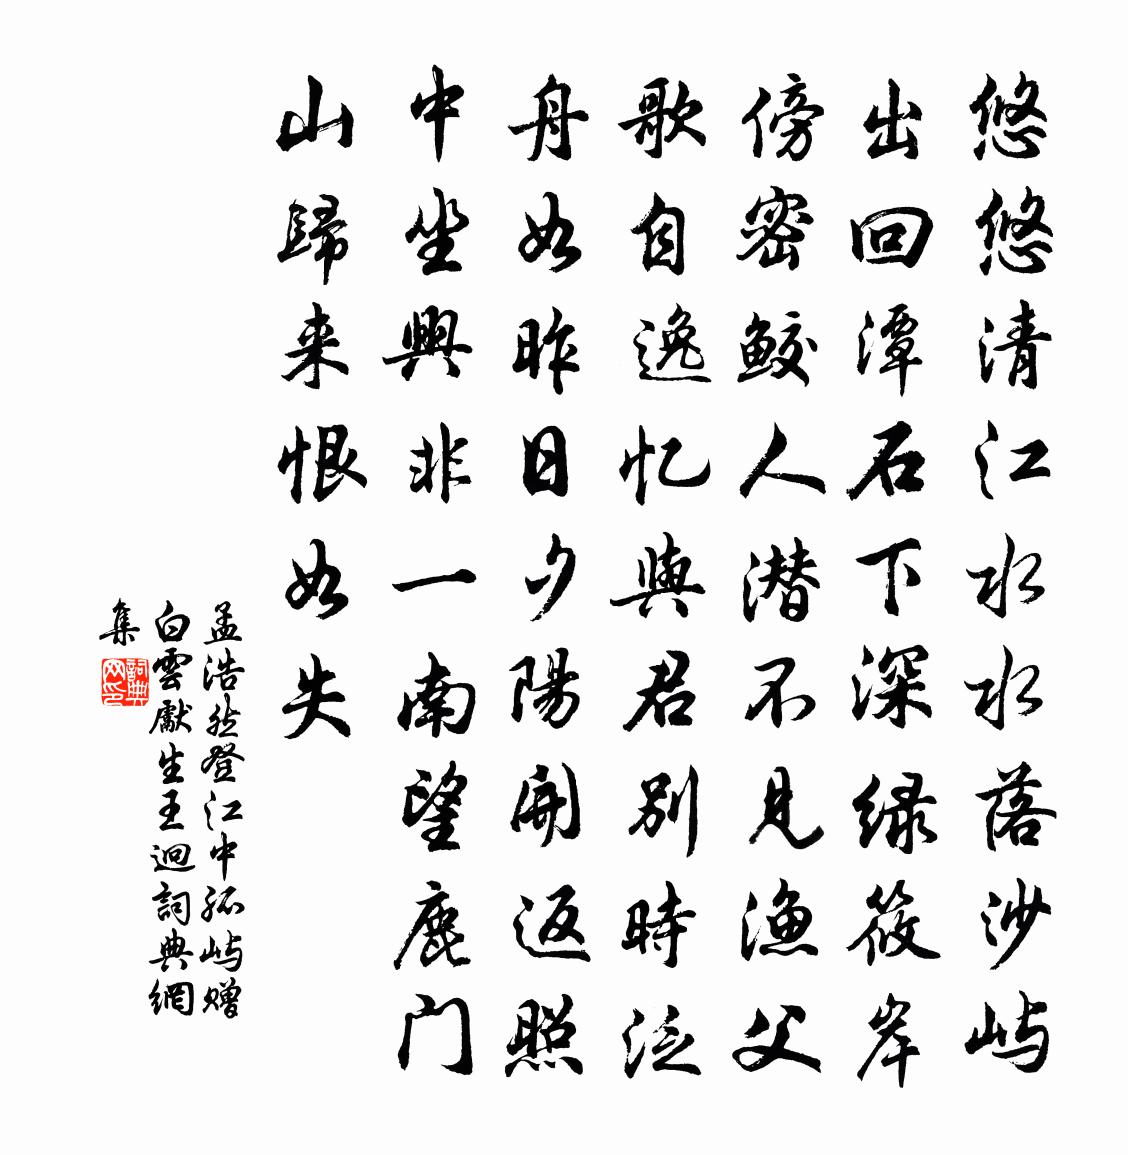 悠悠清江水水落沙屿
出回潭石下深绿筱岸
傍密鲛人潜不见渔父
歌自逸忆與君别時泛
舟如昨日夕陽開返照
中坐興非一南望鹿门
山歸来恨如失
孟浩然登江中孤屿赠
白雲生王迥詞典網
集
詞典
网印